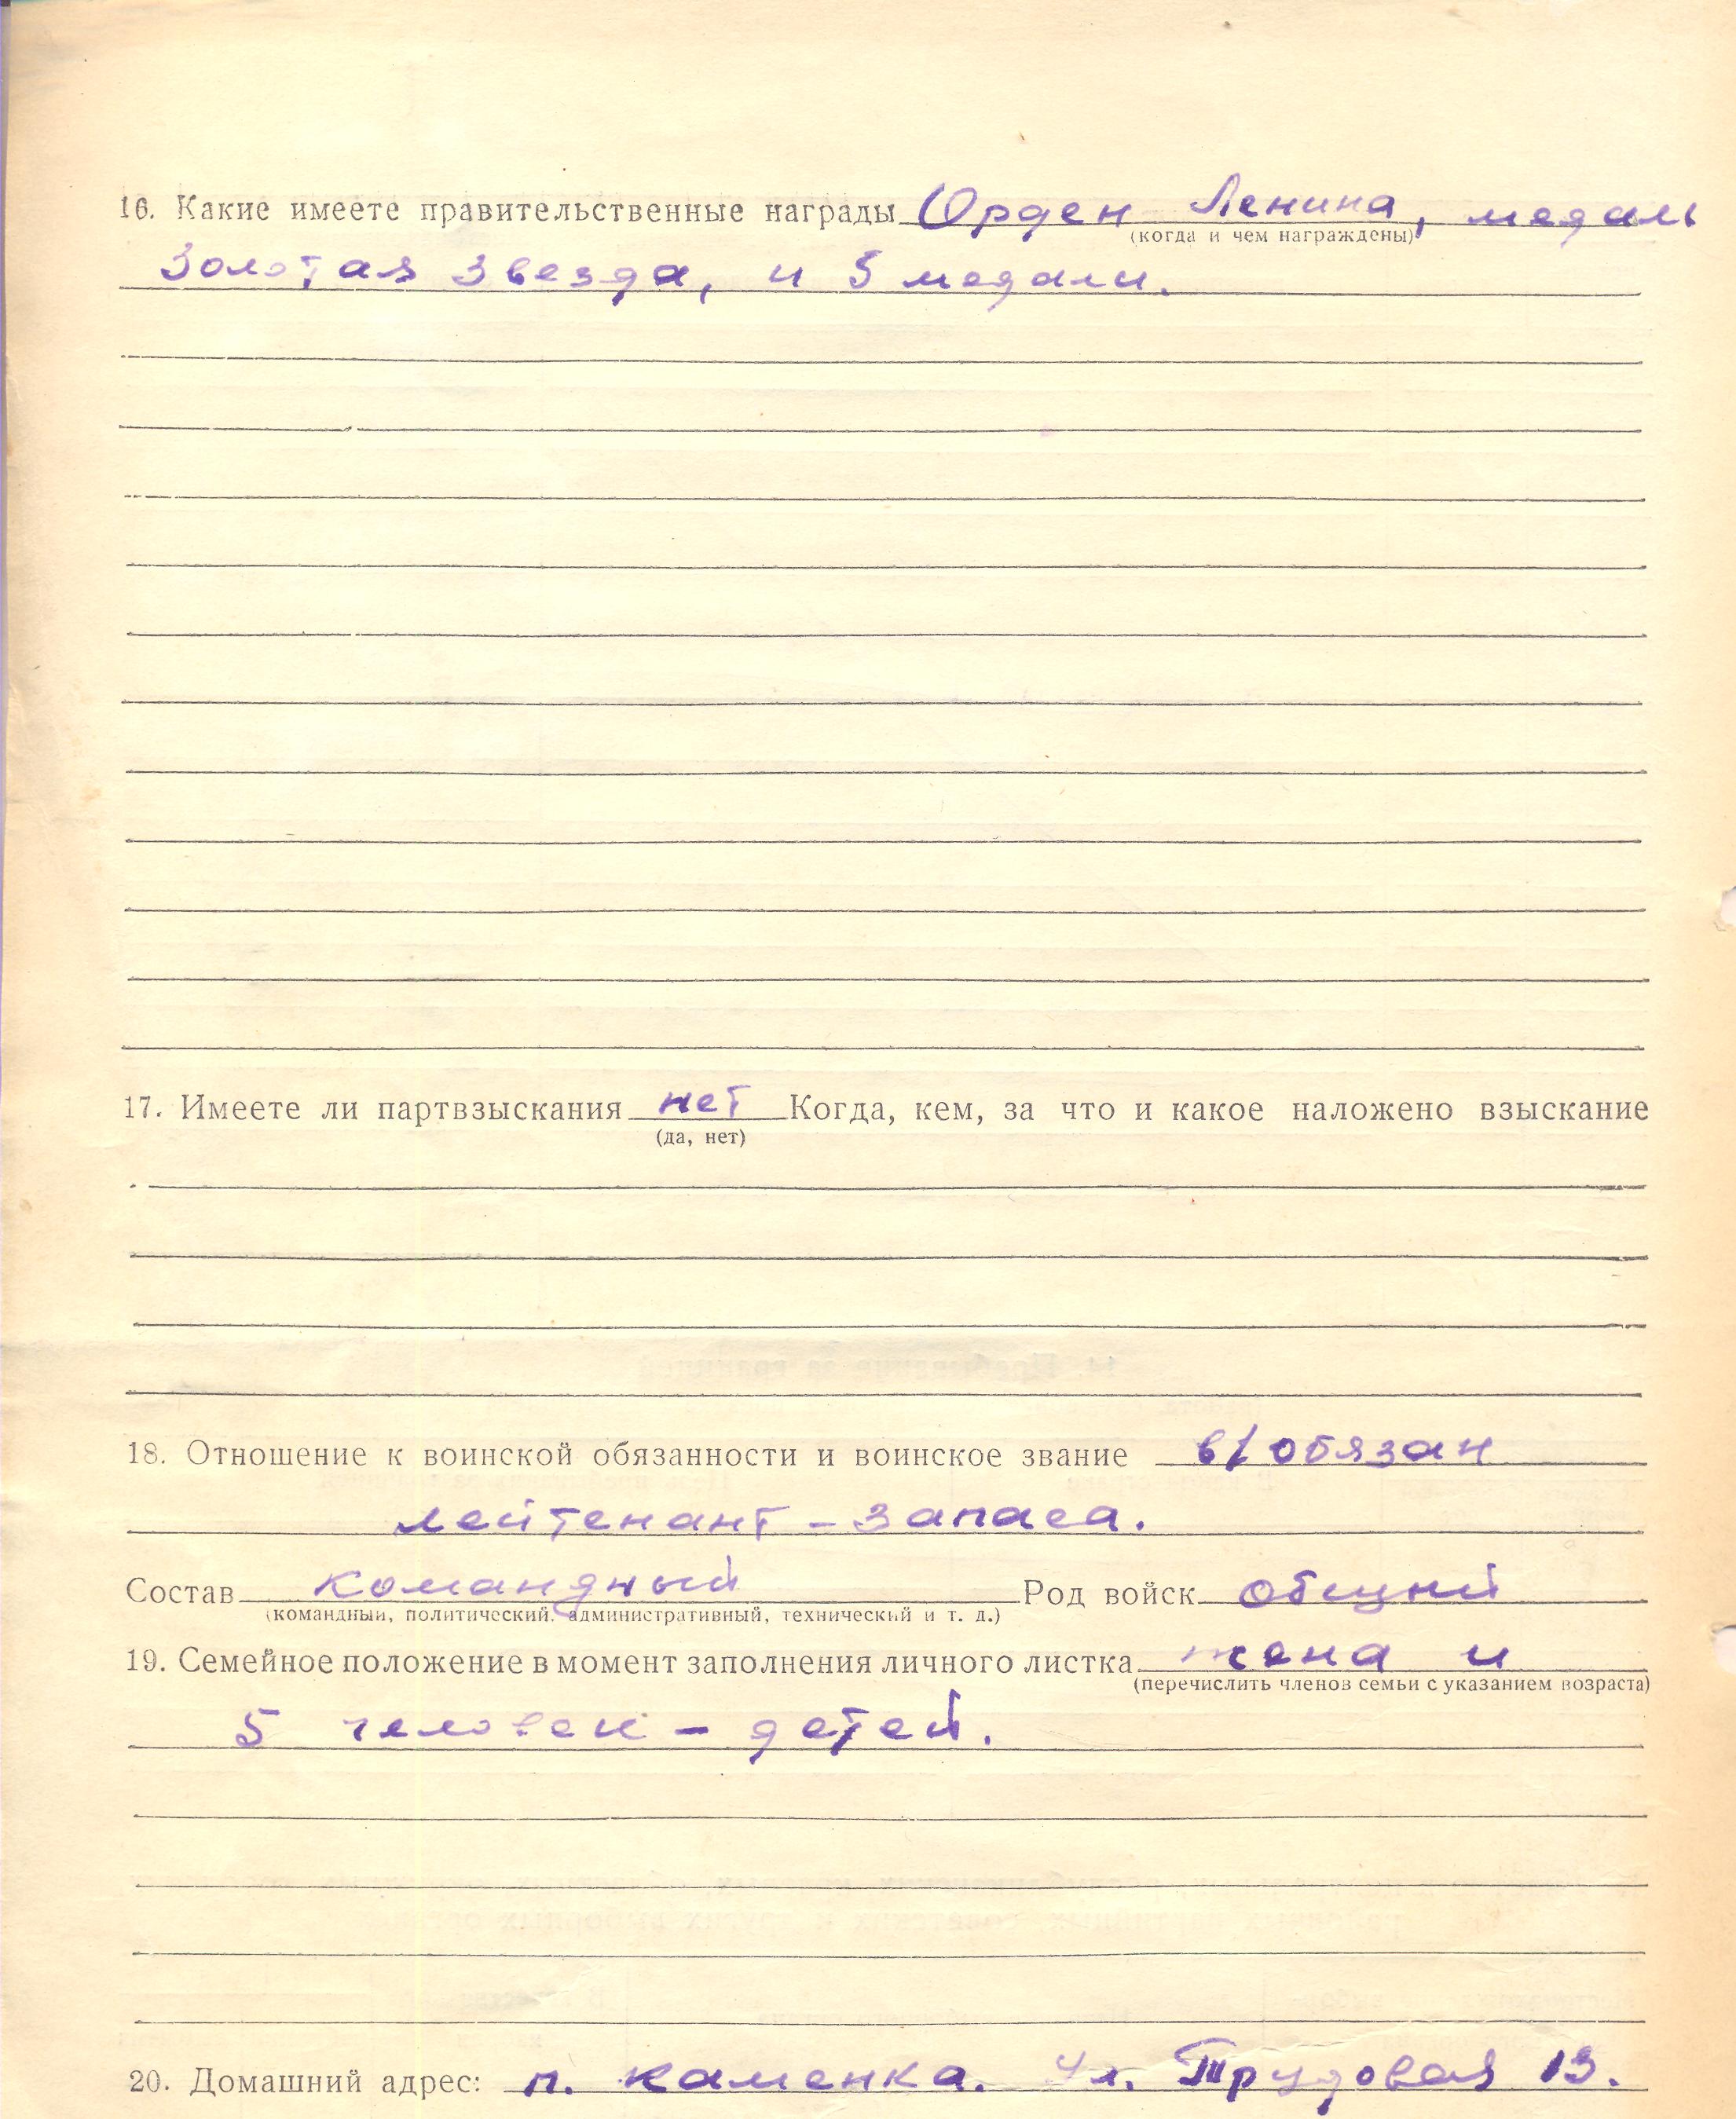 16. Какие имеете правительственные награды Орден Ленина, медаль
(когда и чем награждены)
Золотая Звезда, и 5 медали.
17. Имеете ли партвзыскания нет Когда, кем, за что и какое наложено взыскание
(да, нет)
18. Отношение к воинской обязанности и воинское звание в/обязан
лейтенант - запаса.
Состав командный Род войск общий
(командный, политический, административный, технический и т. д.)
19. Семейное положение в момент заполнения личного листка жена и
(перечислить членов семьи с указанием возраста)
5 человек - детей.
20. Домашний адрес: п. Каменка. Ул. Трудовая 13.